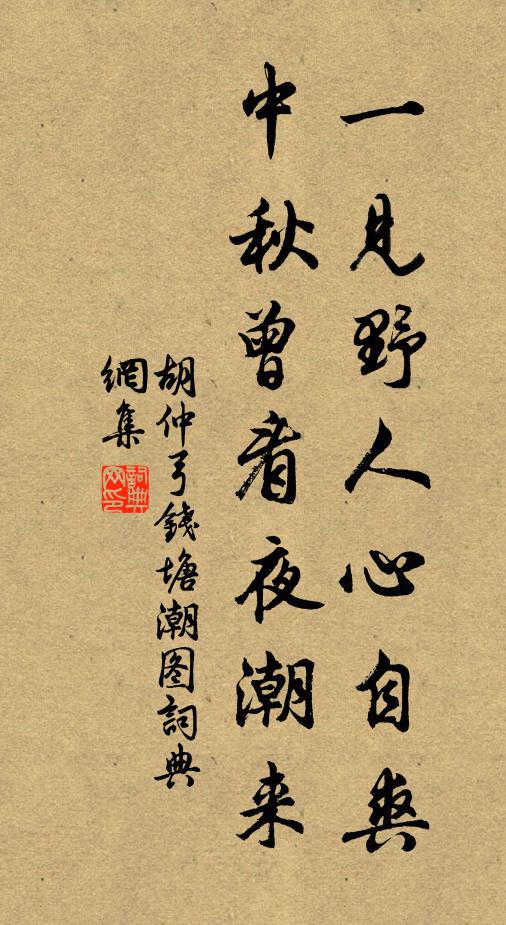 一見野人心自爽
中秋曾看夜潮来
胡仲弓錢塘潮图詞典
網集
詞典
网印